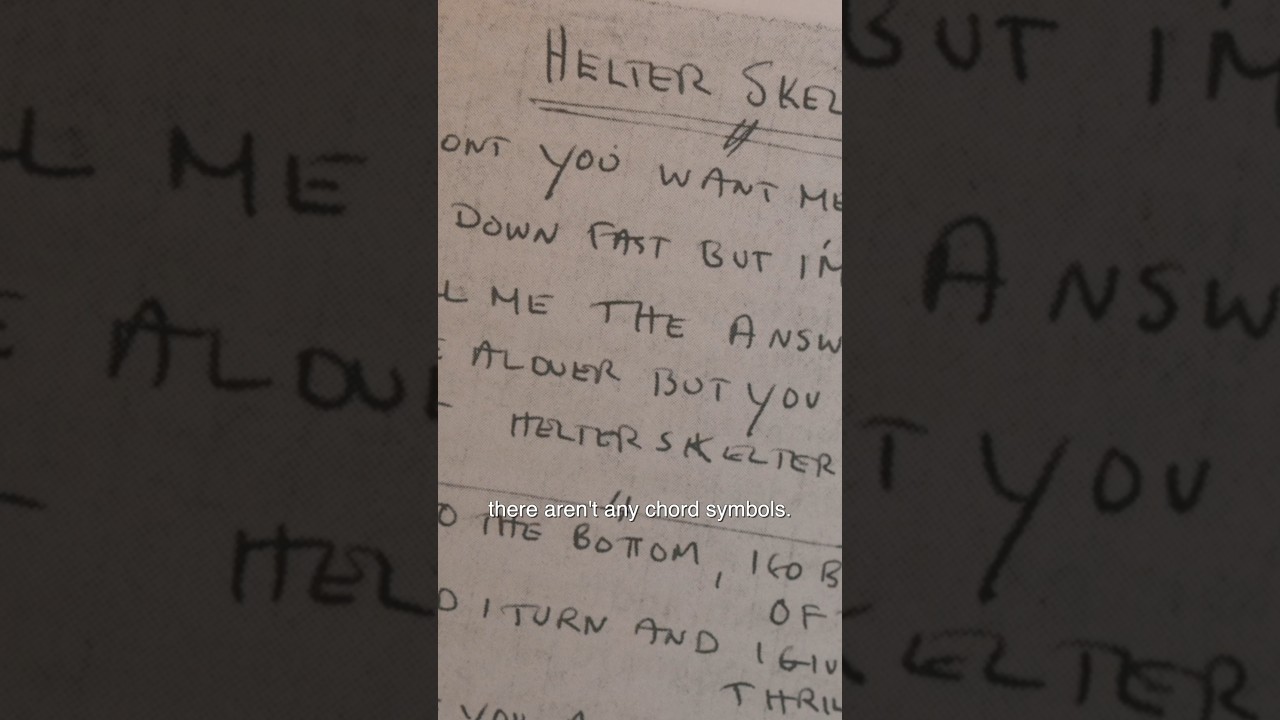 HELTER SKEL
ONT YOU WANT ME
DOWN FAST BUT I'M
L ME THE ANSW
E A LOVER BUT YOU
HELTER SKELTER
there aren't any chord symbols.
O THE BOTTOM, I GO B
OF
D I TURN AND I GIV
THRIL
YOU A